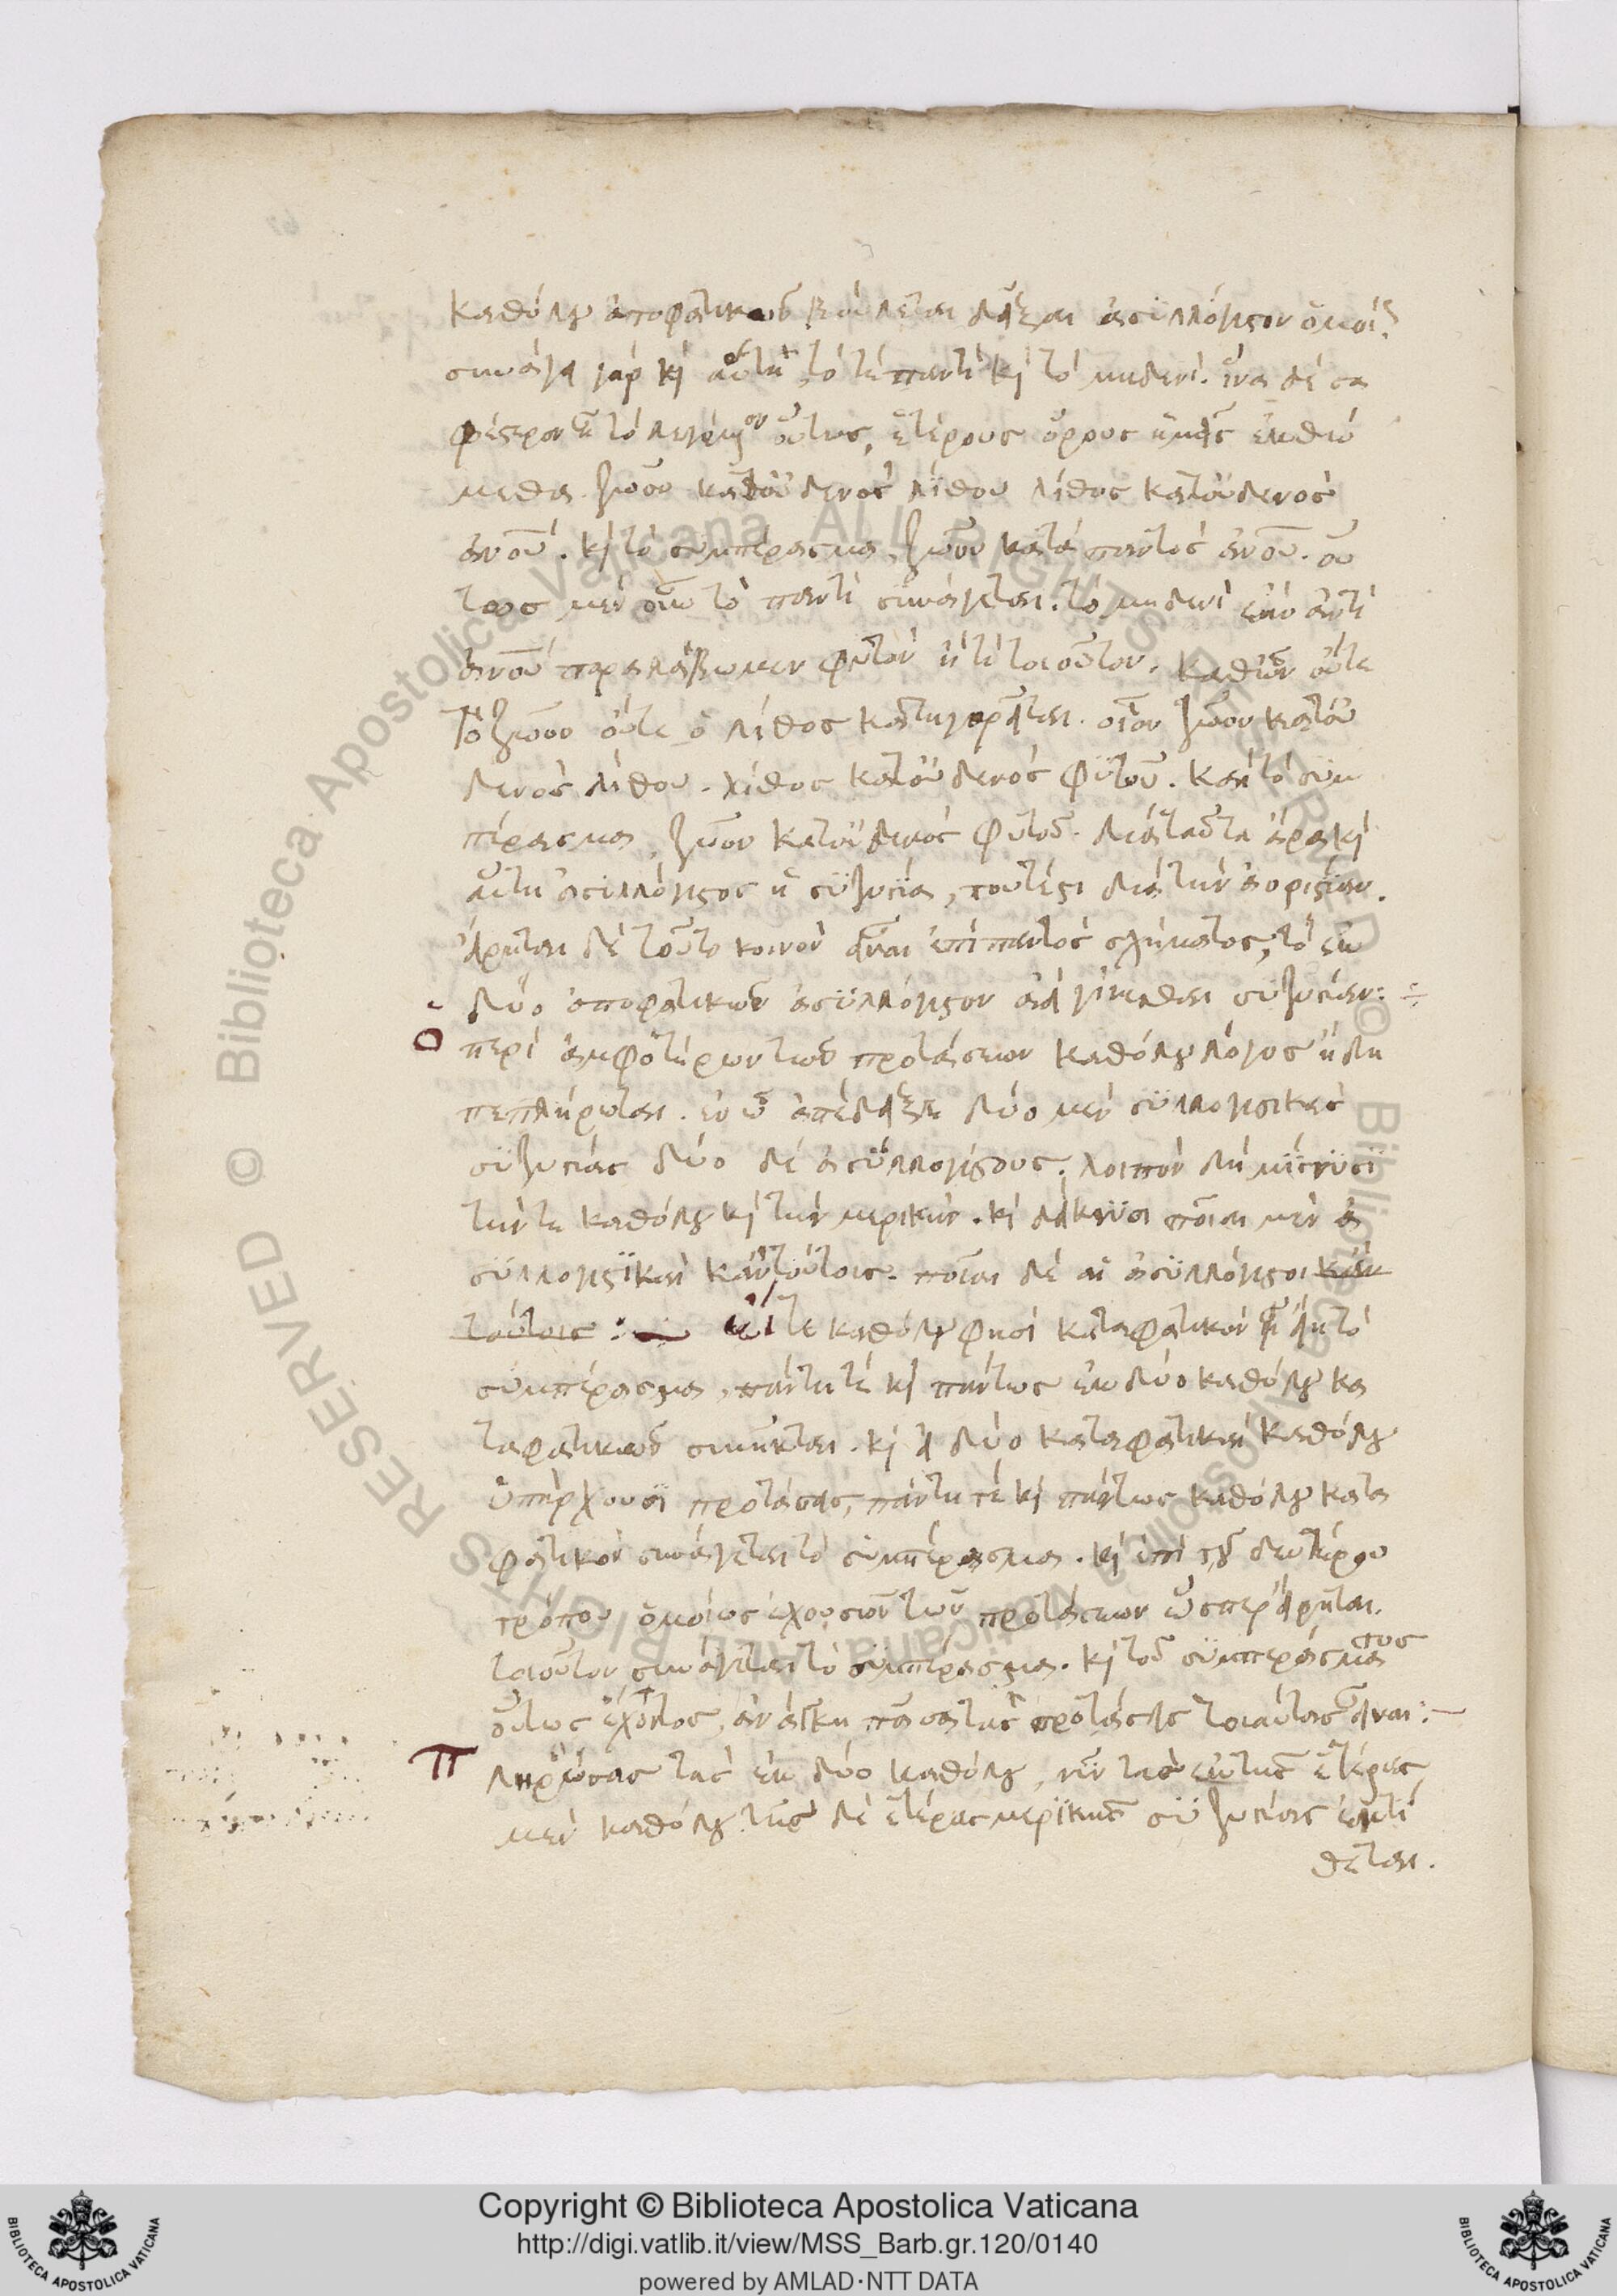 καθόλου ἀποφατικῶν βούλεται δεῖξαι ἀσυλλόγιστον ὁμοίως
συνάγει γὰρ καὶ αὕτη τό τε παντὶ καὶ τὸ μηδενί. ἵνα δὲ σα
φέστερον ᾖ τὸ λεγόμενον οὕτως, ἑτέρους ὅρους ἡμεῖς ἐκθώ
μεθα. ζῶον κατ οὐδενὸς λίθου λίθος κατ οὐδενὸς
ἀνου. καὶ τὸ συμπέρασμα, ζῶον κατὰ παντὸς ἀνου. οὕ
τως μὲν οὖν τὸ παντὶ συνάγεται. τὸ μηδενὶ ἐὰν ἀντὶ
ἀνου παραλάβωμεν φυτὸν ἤ τι τοιοῦτον. καθ ὧν οὔτε
τὸ ζῶον οὔτε ὁ λίθος κατηγορεῖται. οἷον ζῶον κατ οὐ
δενὸς λίθου. λίθος κατ οὐδενὸς φυτοῦ. καὶ τὸ συμ
πέρασμα, ζῶον κατ οὐδενὸς φυτοῦ. διὰ ταῦτα ἄρα καὶ
αὕτη ἀσυλλόγιστος ἡ συζυγία, τουτέστι διὰ τὴν ἀοριστίαν.
εἴρηται δὲ τοῦτο κοινὸν εἶναι ἐπὶ παντὸς σχήματος, τὸ ἐκ
δύο ἀποφατικῶν ἀσυλλόγιστον ἀεὶ γίνεσθαι συζυγίαν:
περὶ ἀμφοτέρων τῶν προτάσεων καθόλου λόγος ἤδη
πεπλήρωται. ἐν ᾧ ἀπέδειξε δύο μὲν συλλογιστικὰς
συζυγίας δύο δὲ ἀσυλλογίστους. λοιπὸν δὴ μίγνυσι
τήν τε καθόλου καὶ τὴν μερικήν. καὶ δείκνυσι ποῖαι μὲν
συλλογιστικαὶ κἀν τούτοις. ποῖαι δὲ αἱ ἀσυλλόγιστοι κἀν
τούτοις: καθόλου φησὶ καταφατικὸν τὸ
συμπέρασμα, πάντη τε καὶ πάντως ἐκ δύο καθόλου κα
ταφατικῶν συνῆκται. καὶ εἰ δύο καταφατικαὶ καθόλου
ὑπάρχουσι προτάσεις, πάντη τε καὶ πάντως καθόλου κατα
φατικὸν συνάγεται τὸ συμπέρασμα. καὶ ἐπὶ τοῦ δευτέρου
τρόπου ὁμοίως ἐχουσῶν τῶν προτάσεων ὥσπερ εἴρηται.
τοιοῦτον συνάγεται τὸ συμπέρασμα. καὶ τοῦ συμπεράσματος
οὕτως ἔχοντος, ἀνάγκη πᾶσα τὰς προτάσεις τοιαύτας εἶναι:
Πληρώσας τὰς ἐκ δύο καθόλου, νῦν τὰς ἐκ τῆς ἑτέρας
μὲν καθόλου τῆς δὲ ἑτέρας μερικῆς συζυγίας ἐκτί
θεται.
Copyright © Biblioteca Apostolica Vaticana
http://digi.vatlib.it/view/MSS_Barb.gr.120/0140
powered by AMLAD·NTT DATA